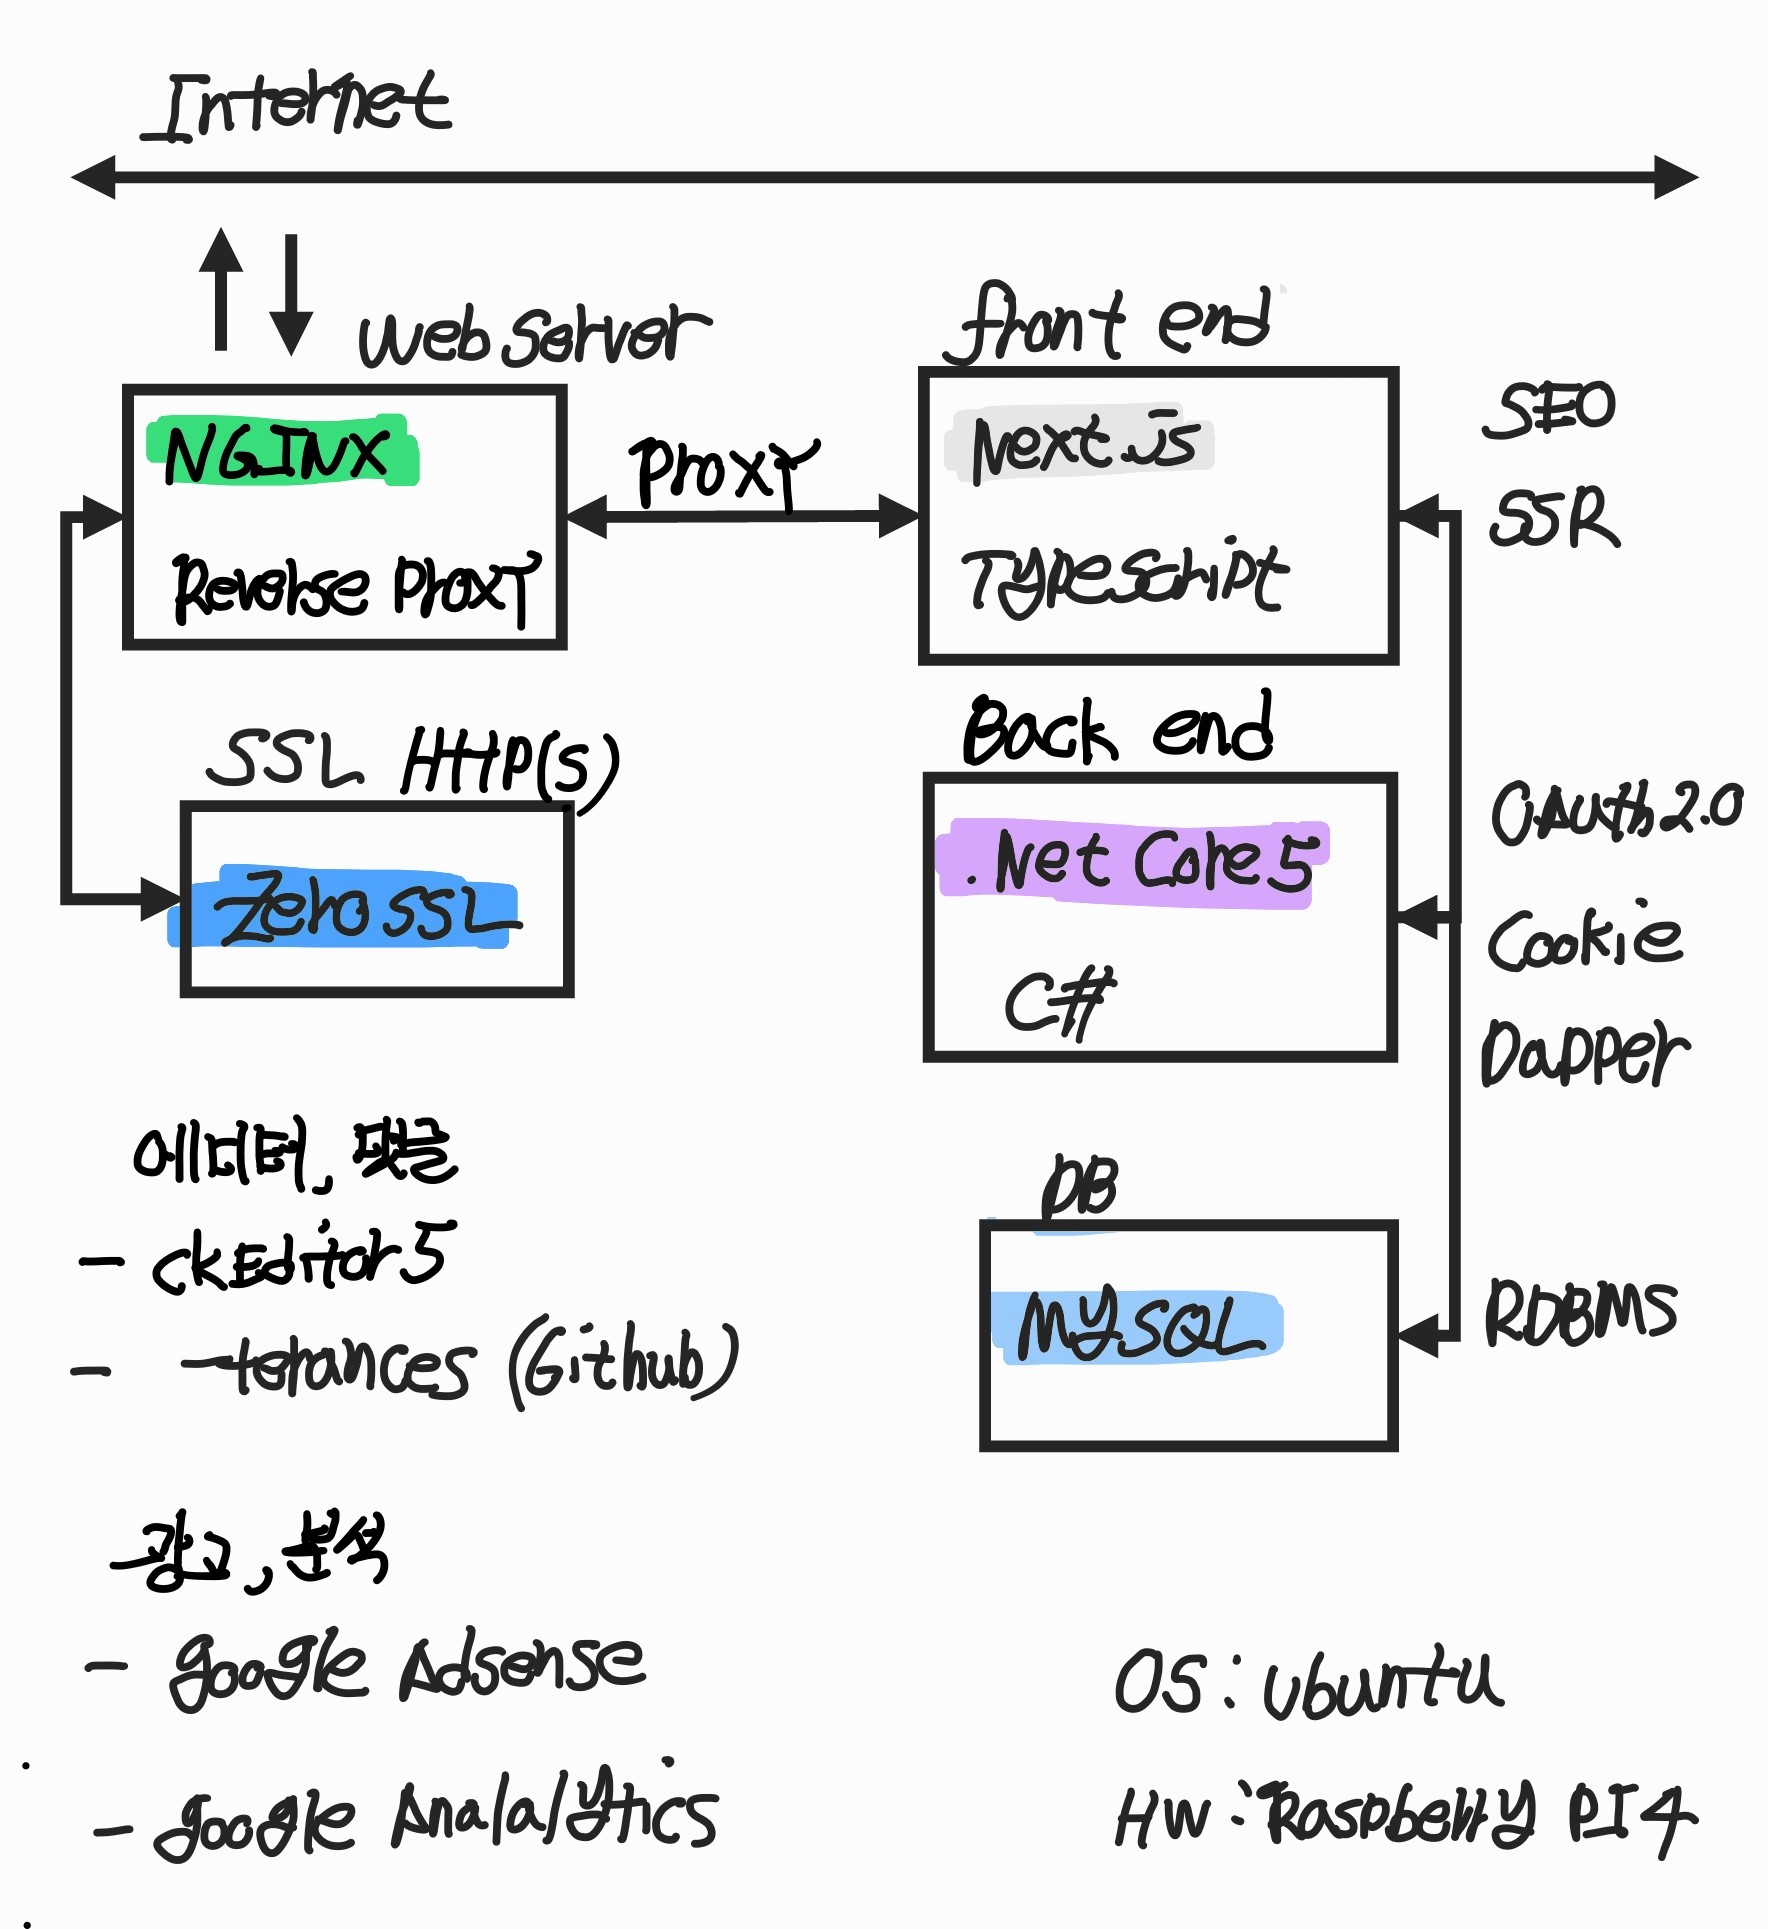 Internet
Web Server
NGINX
Reverse Proxy
Proxy
front end
Next.js
Typescript
SEO
SSR
SSL HTTP(s)
Zero SSL
Back end
.Net Core 5
C#
OAuth 2.0
Cookie
Dapper
DB
MySQL
RDBMS
에디터, 댓글
- CkEditor 5
- uterances (Github)
광고, 분석
- google Adsense
- google Analalytics
OS : Ubuntu
HW : Raspberry PI 4